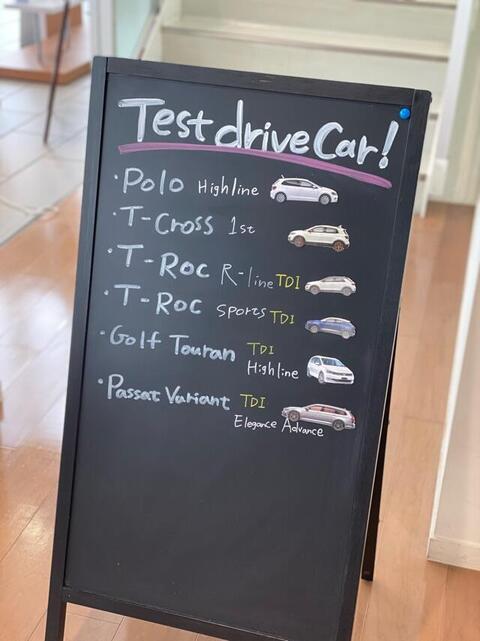 Test drive Car!
・Polo Highline
・T-Cross 1st
・T-Roc R-line TDI
・T-Roc Sports TDI
・Golf Touran TDI
Highline
・Passat Variant TDI
Elegance Advance